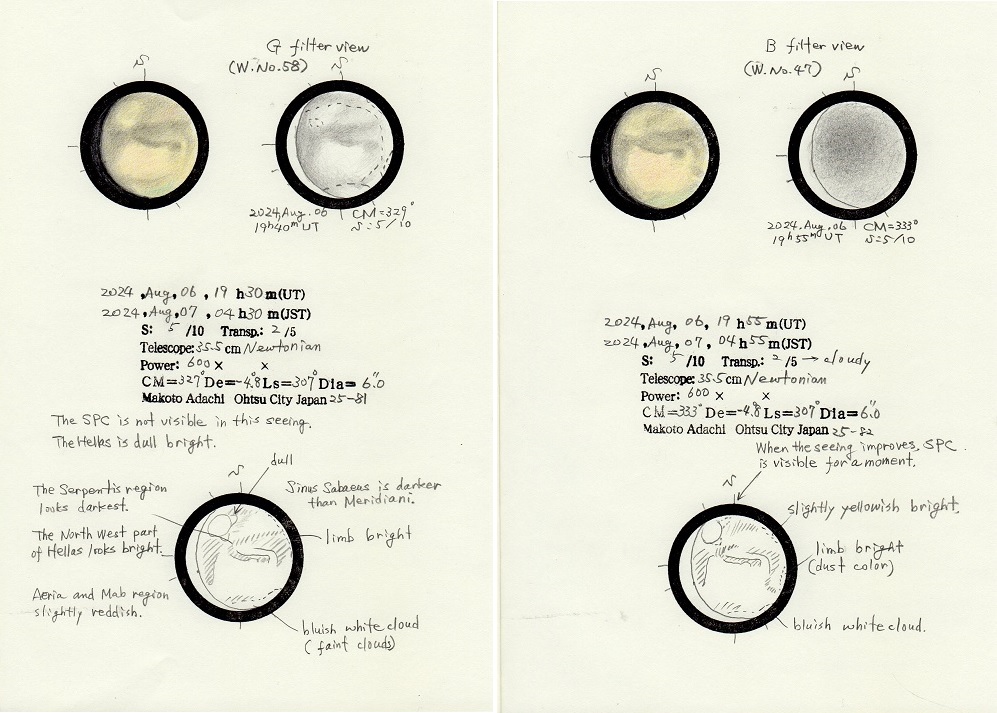 G filter view
(W.No.58)
S
S
2024, Aug. 06 CM=329°
19h40m UT S=5/10
2024, Aug, 06, 19 h30m(UT)
2024, Aug, 07, 04 h30m(JST)
S: 5 /10 Transp.: 2 /5
Telescope: 35.5 cm Newtonian
Power: 600 × ×
CM=327° De=-4.8 Ls=307° Dia= 6".0
Makoto Adachi Ohtsu City Japan 25-81
The SPC is not visible in this seeing.
The Hellas is dull bright.
dull
S
The Serpentis region
looks darkest.
Sinus Sabaeus is darker
than Meridiani.
The North West part
of Hellas looks bright.
limb bright
Aeria and Mab region
slightly reddish.
bluish white cloud
(faint clouds)
B filter view
(W.No.47)
S
S
2024. Aug. 06 CM=333°
19h55m UT S=5/10
2024, Aug, 06, 19 h55m(UT)
2024, Aug, 07, 04 h55m(JST)
S: 5 /10 Transp.: 2 /5 → cloudy
Telescope: 35.5 cm Newtonian
Power: 600 × ×
CM=333° De=-4.8 Ls=307° Dia= 6".0
Makoto Adachi Ohtsu City Japan 25-82
When the seeing improves, SPC
is visible for a moment.
S
slightly yellowish bright.
limb bright
(dust color)
bluish white cloud.